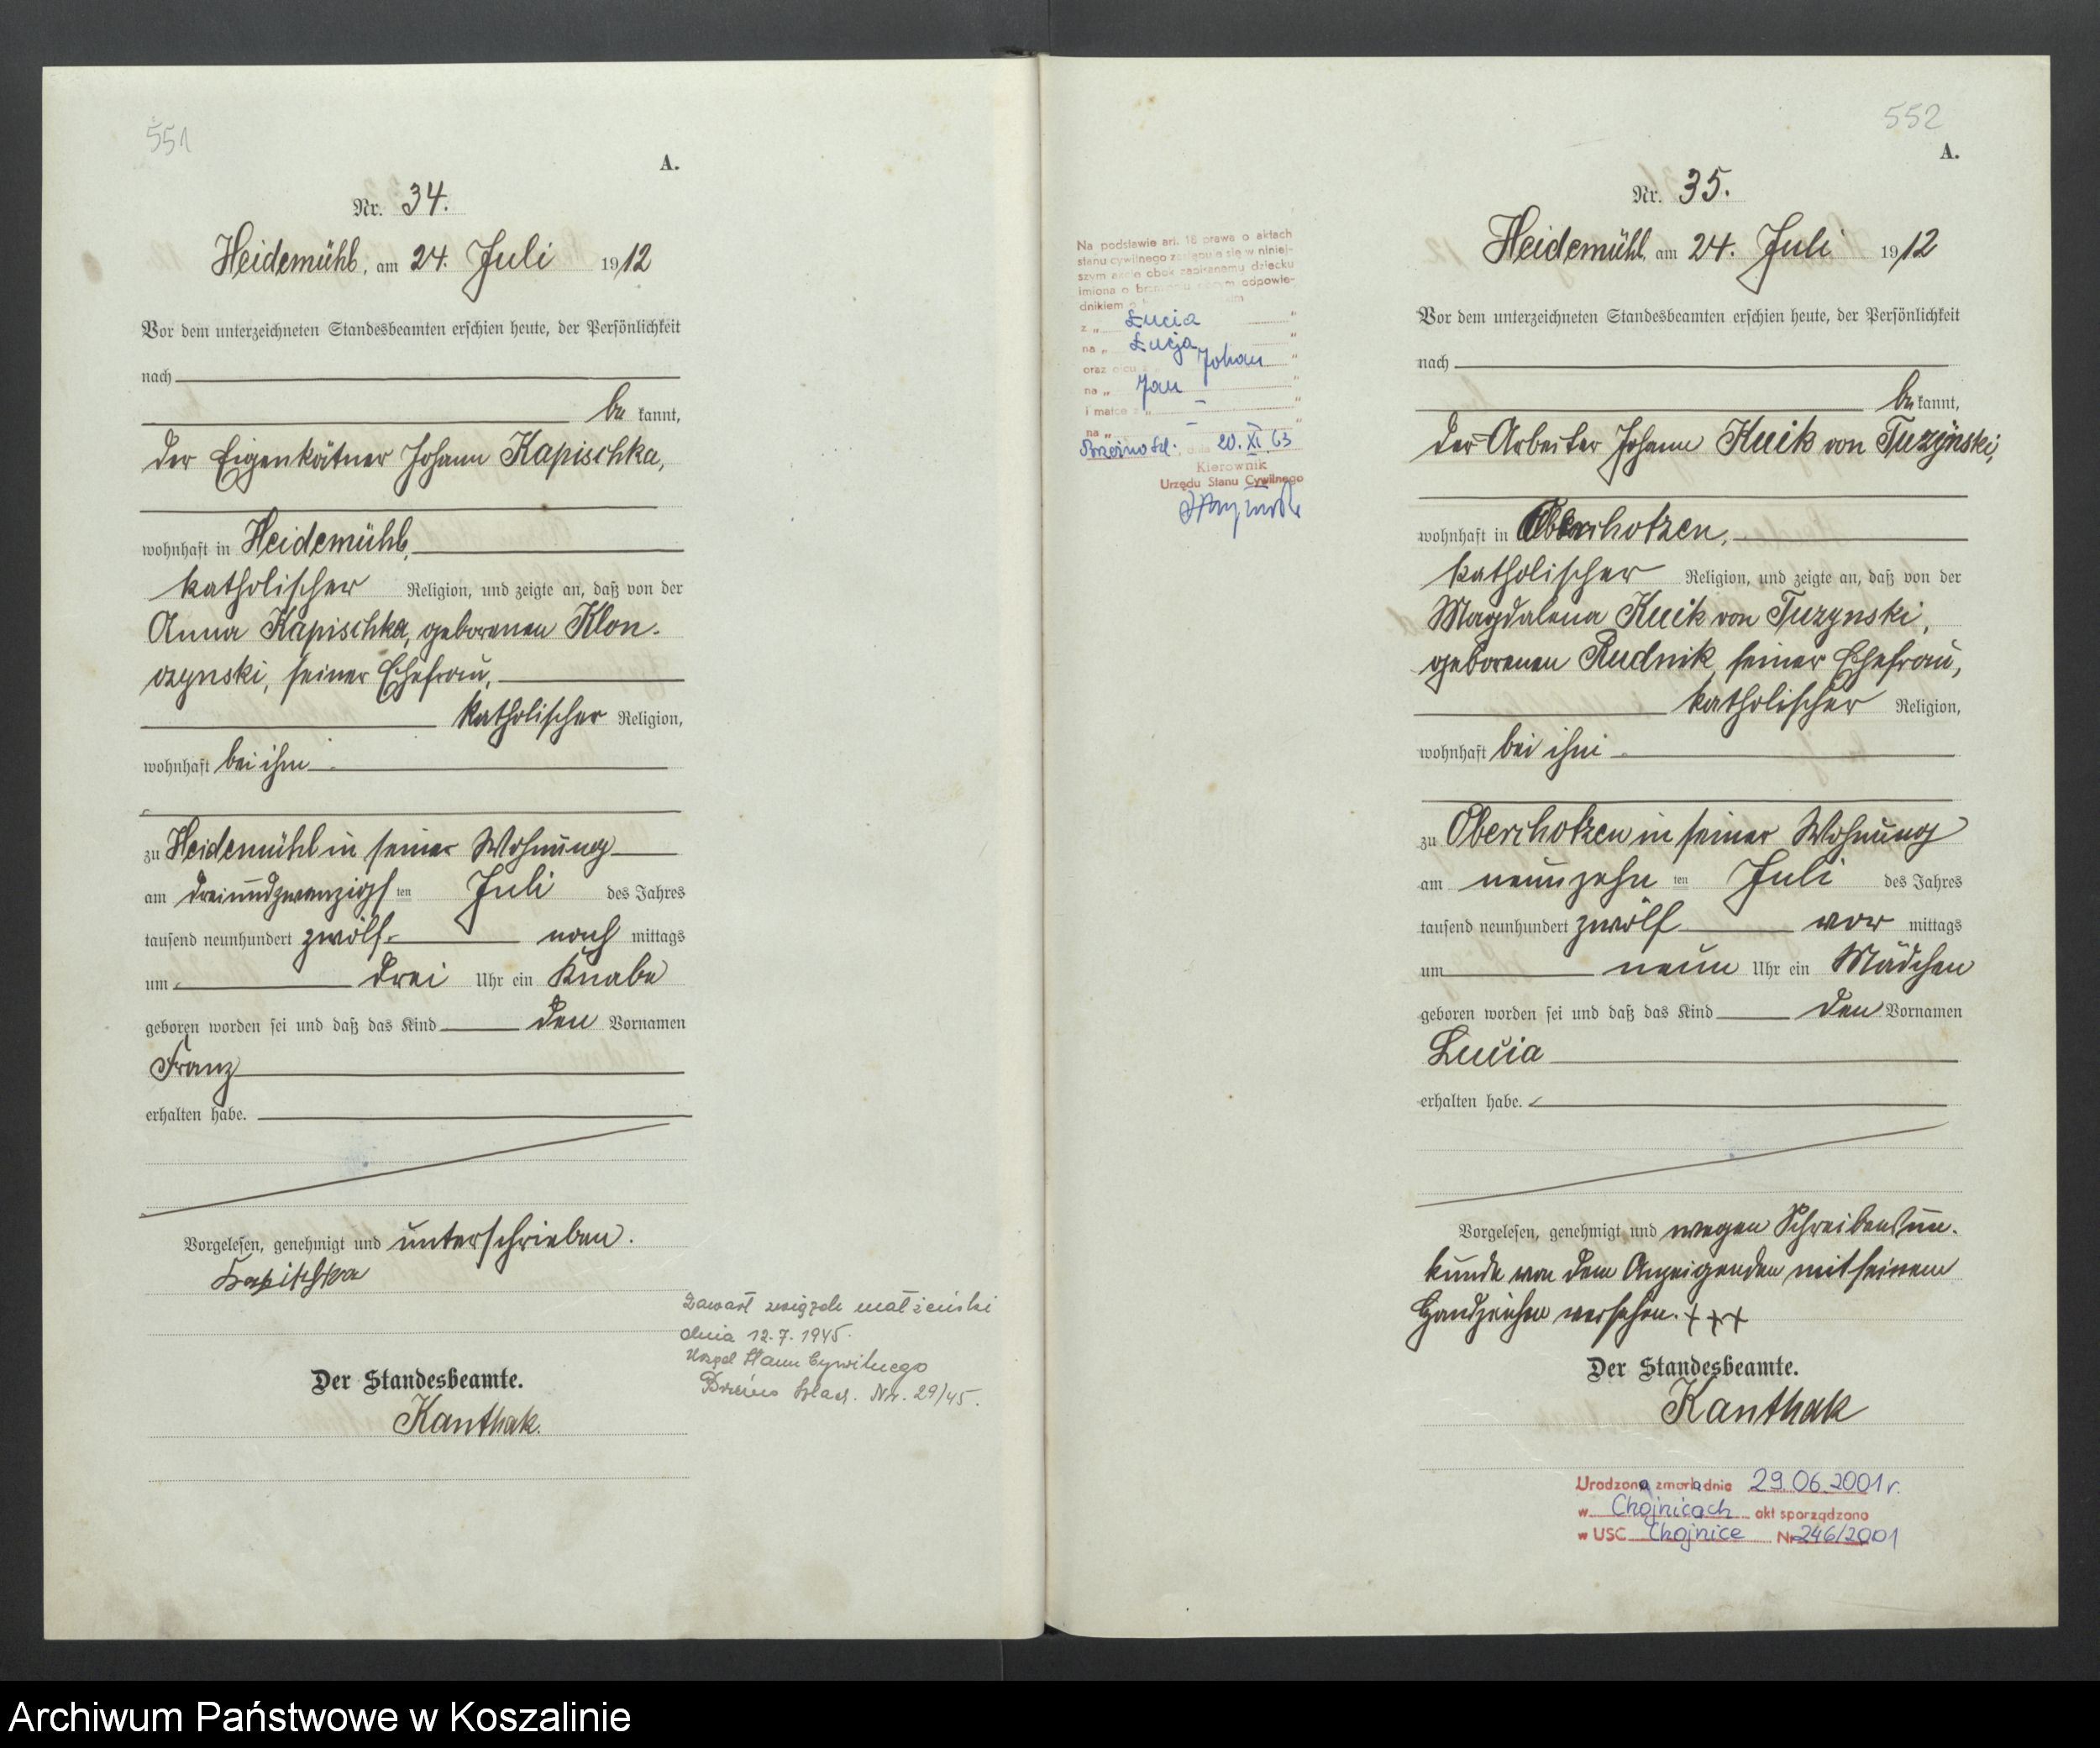 551
A.
Nr. 34.
Heidemühl, am 24. Juli 1912
Vor dem unterzeichneten Standesbeamten erschien heute, der Persönlichkeit
nach
be kannt,
der Eigenkätner Johann Kapischka,
wohnhaft in Heidemühl,
katholischer Religion, und zeigte an, daß von der
Anna Kapischka, geborenen Klon-
czynski, seiner Ehefrau,
katholischer Religion,
wohnhaft bei ihm
zu Heidemühl in seiner Wohnung
am dreiundzwanzigsten Juli des Jahres
tausend neunhundert zwölf nach mittags
um drei Uhr ein Knabe
geboren worden sei und daß das Kind den Vornamen
Franz
erhalten habe.
Vorgelesen, genehmigt und unterschrieben.
Kapischka
Der Standesbeamte.
Kanthak.
Zawarł związek małżeński
dnia 12.7.1945.
Urząd Stanu Cywilnego
Brzeźno Szlach. Nr. 29/45.
552
A.
Nr. 35.
Heidemühl, am 24. Juli 1912
Na podstawie art. 18 prawa o aktach
stanu cywilnego zastępuje się w niniej-
szym akcie obok zapisanemu dziecku
imiona o brzmieniu obcym odpowie-
dnikiem o
z „ Łucia "
na „ Łucja "
oraz ojcu z Johan "
na „ Jan "
i matce z „ - "
na „ - "
Brzeźno Szl. dnia 20. XI. 63
Kierownik
Urzędu Stanu Cywilnego
Vor dem unterzeichneten Standesbeamten erschien heute, der Persönlichkeit
nach
be kannt,
der Arbeiter Johann Kuik von Tuzynski,
wohnhaft in Oberchotzen,
katholischer Religion, und zeigte an, daß von der
Magdalena Kuik von Tuzynski,
geborenen Rudnik, seiner Ehefrau,
katholischer Religion,
wohnhaft bei ihm
zu Oberchotzen in seiner Wohnung
am neunzehn ten Juli des Jahres
tausend neunhundert zwölf vor mittags
um neun Uhr ein Mädchen
geboren worden sei und daß das Kind den Vornamen
Lucia
erhalten habe.
Vorgelesen, genehmigt und wegen Schreibensun-
kunde von dem Anzeigenden mit seinem
Handzeichen versehen. +++
Der Standesbeamte.
Kanthak
Urodzona zmarła dnia 29.06.2001 r.
w Chojnicach akt sporządzono
w USC Chojnice Nr 246/2001
Archiwum Państwowe w Koszalinie